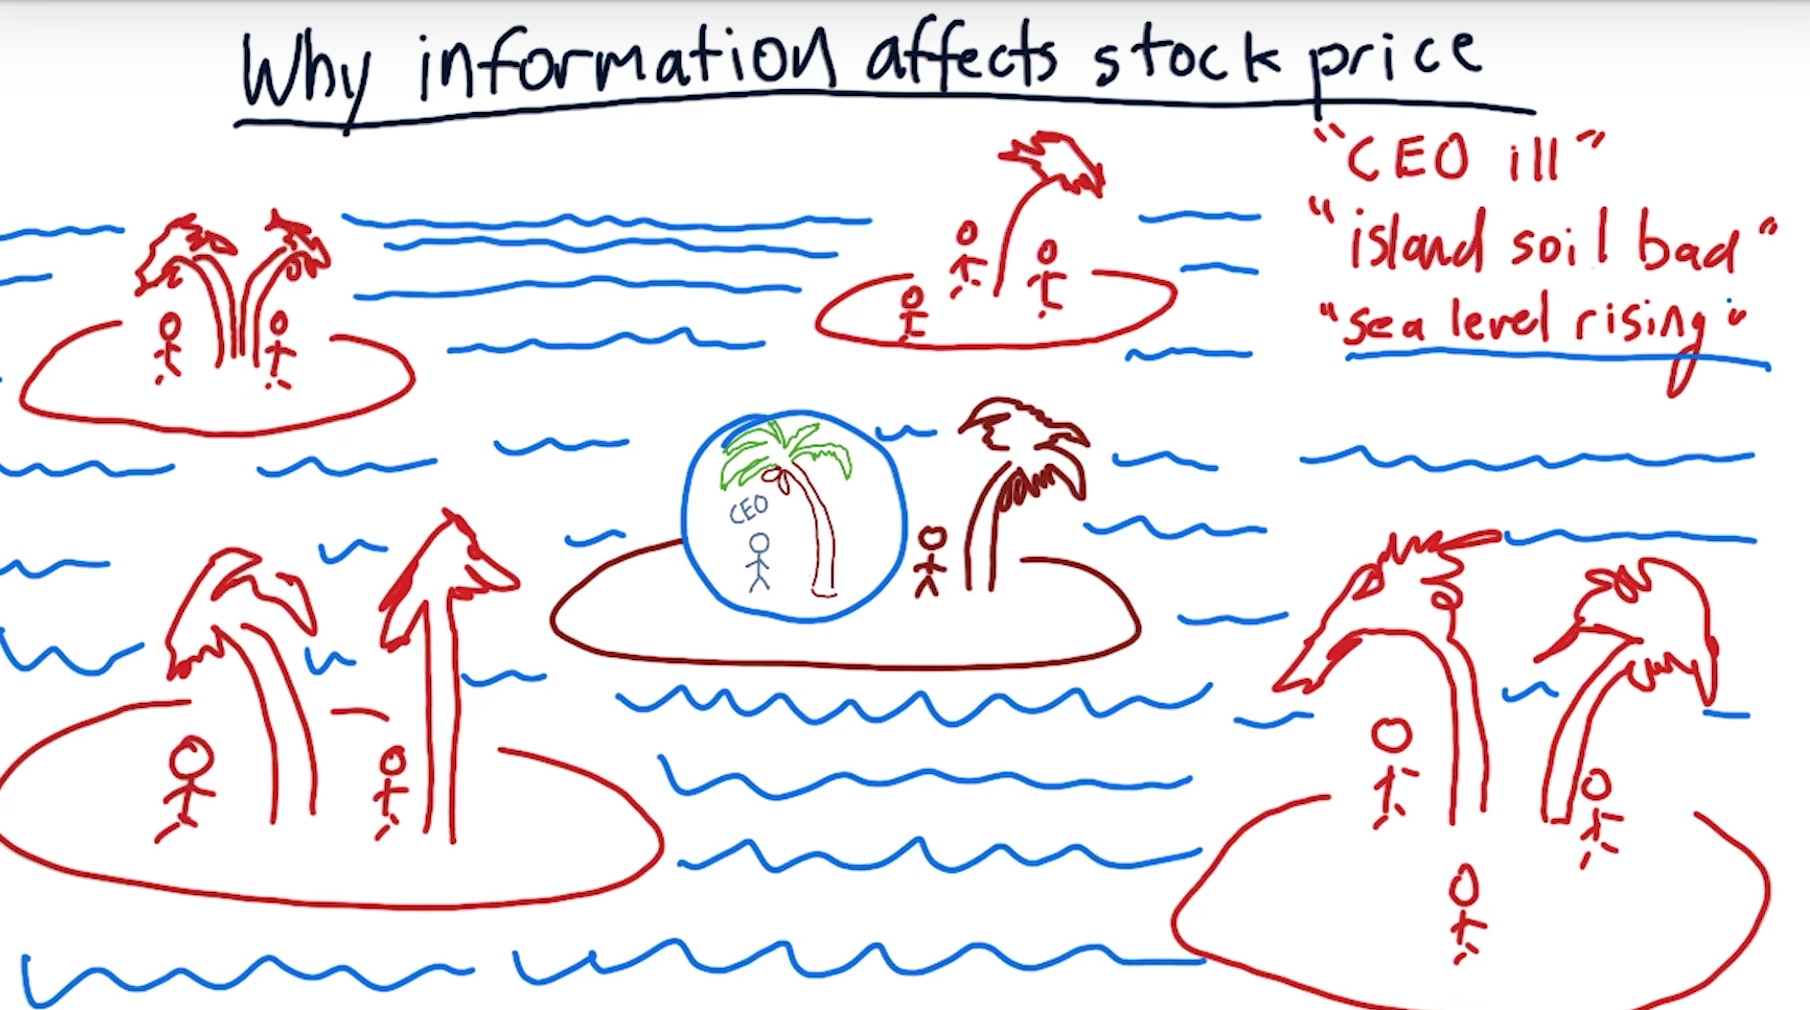 Why information affects stock price
"CEO ill"
"island soil bad"
"sea level rising"
CEO